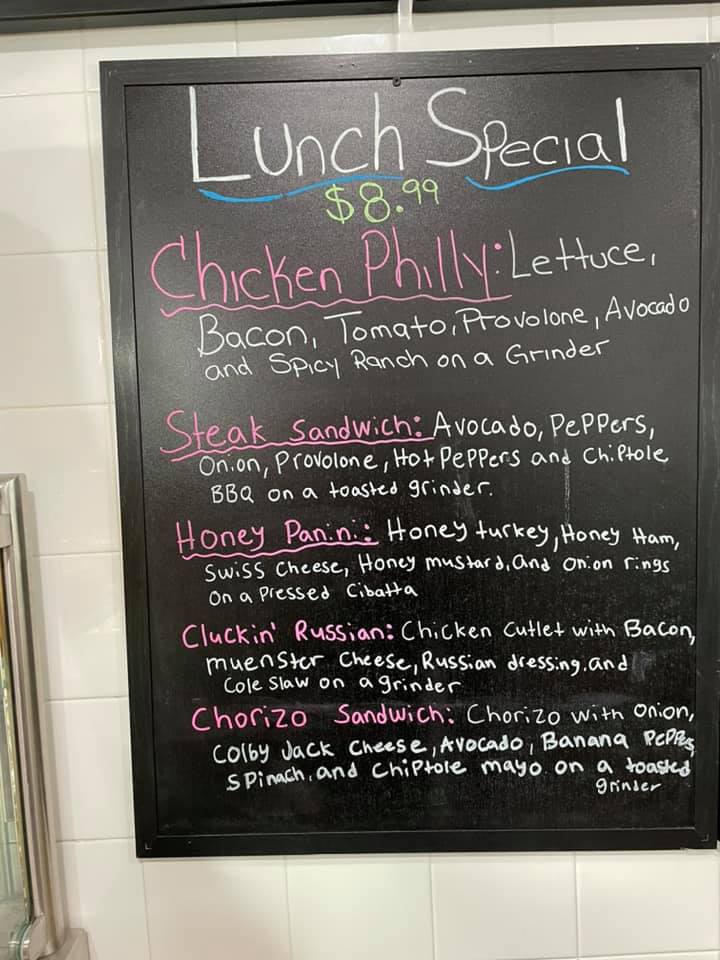 Lunch Special
$8.99
Chicken Philly: Lettuce,
Bacon, Tomato, Provolone, Avocado
and Spicy Ranch on a Grinder
Steak Sandwich: Avocado, Peppers,
Onion, Provolone, Hot Peppers and Chiptole
BBQ on a toasted grinder.
Honey Panini: Honey turkey, Honey Ham,
Swiss Cheese, Honey mustard, and onion rings
on a Pressed Cibatta
Cluckin' Russian: Chicken Cutlet with Bacon,
muenster Cheese, Russian dressing, and
Cole Slaw on a grinder
Chorizo Sandwich: Chorizo with onion,
Colby Jack Cheese, Avocado, Banana Peppers,
Spinach, and Chiptole mayo on a toasted
grinder